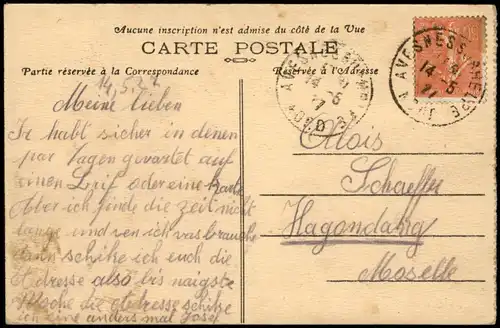 Aucune inscription n'est admise du côté de la Vue
CARTE POSTALE
Partie réservée à la Correspondance
Réservée à l'Adresse
14.5.
Meine lieben
Ir habt sicher in denen
par Tagen gwartet auf
einen Brif oder eine Karte
Aber ich finde die zeit nicht
lange und ven ich vas brauche
dann schike ich euch die
Adresse also bis naigste
Woche die Adresse schike
ich eine anders mal Josef
AVESNES S/
14 -5
AVESNES S/
14 -5
Alois
Schaeffer
Hagondang
Moselle